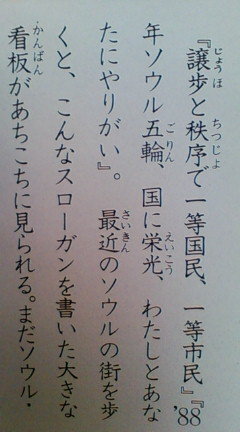 『譲歩と秩序で一等国民、一等市民』『'88
年ソウル五輪、国に栄光、わたしとあな
たにやりがい』。　最近のソウルの街を歩
くと、こんなスローガンを書いた大きな
看板があちこちに見られる。まだソウル・